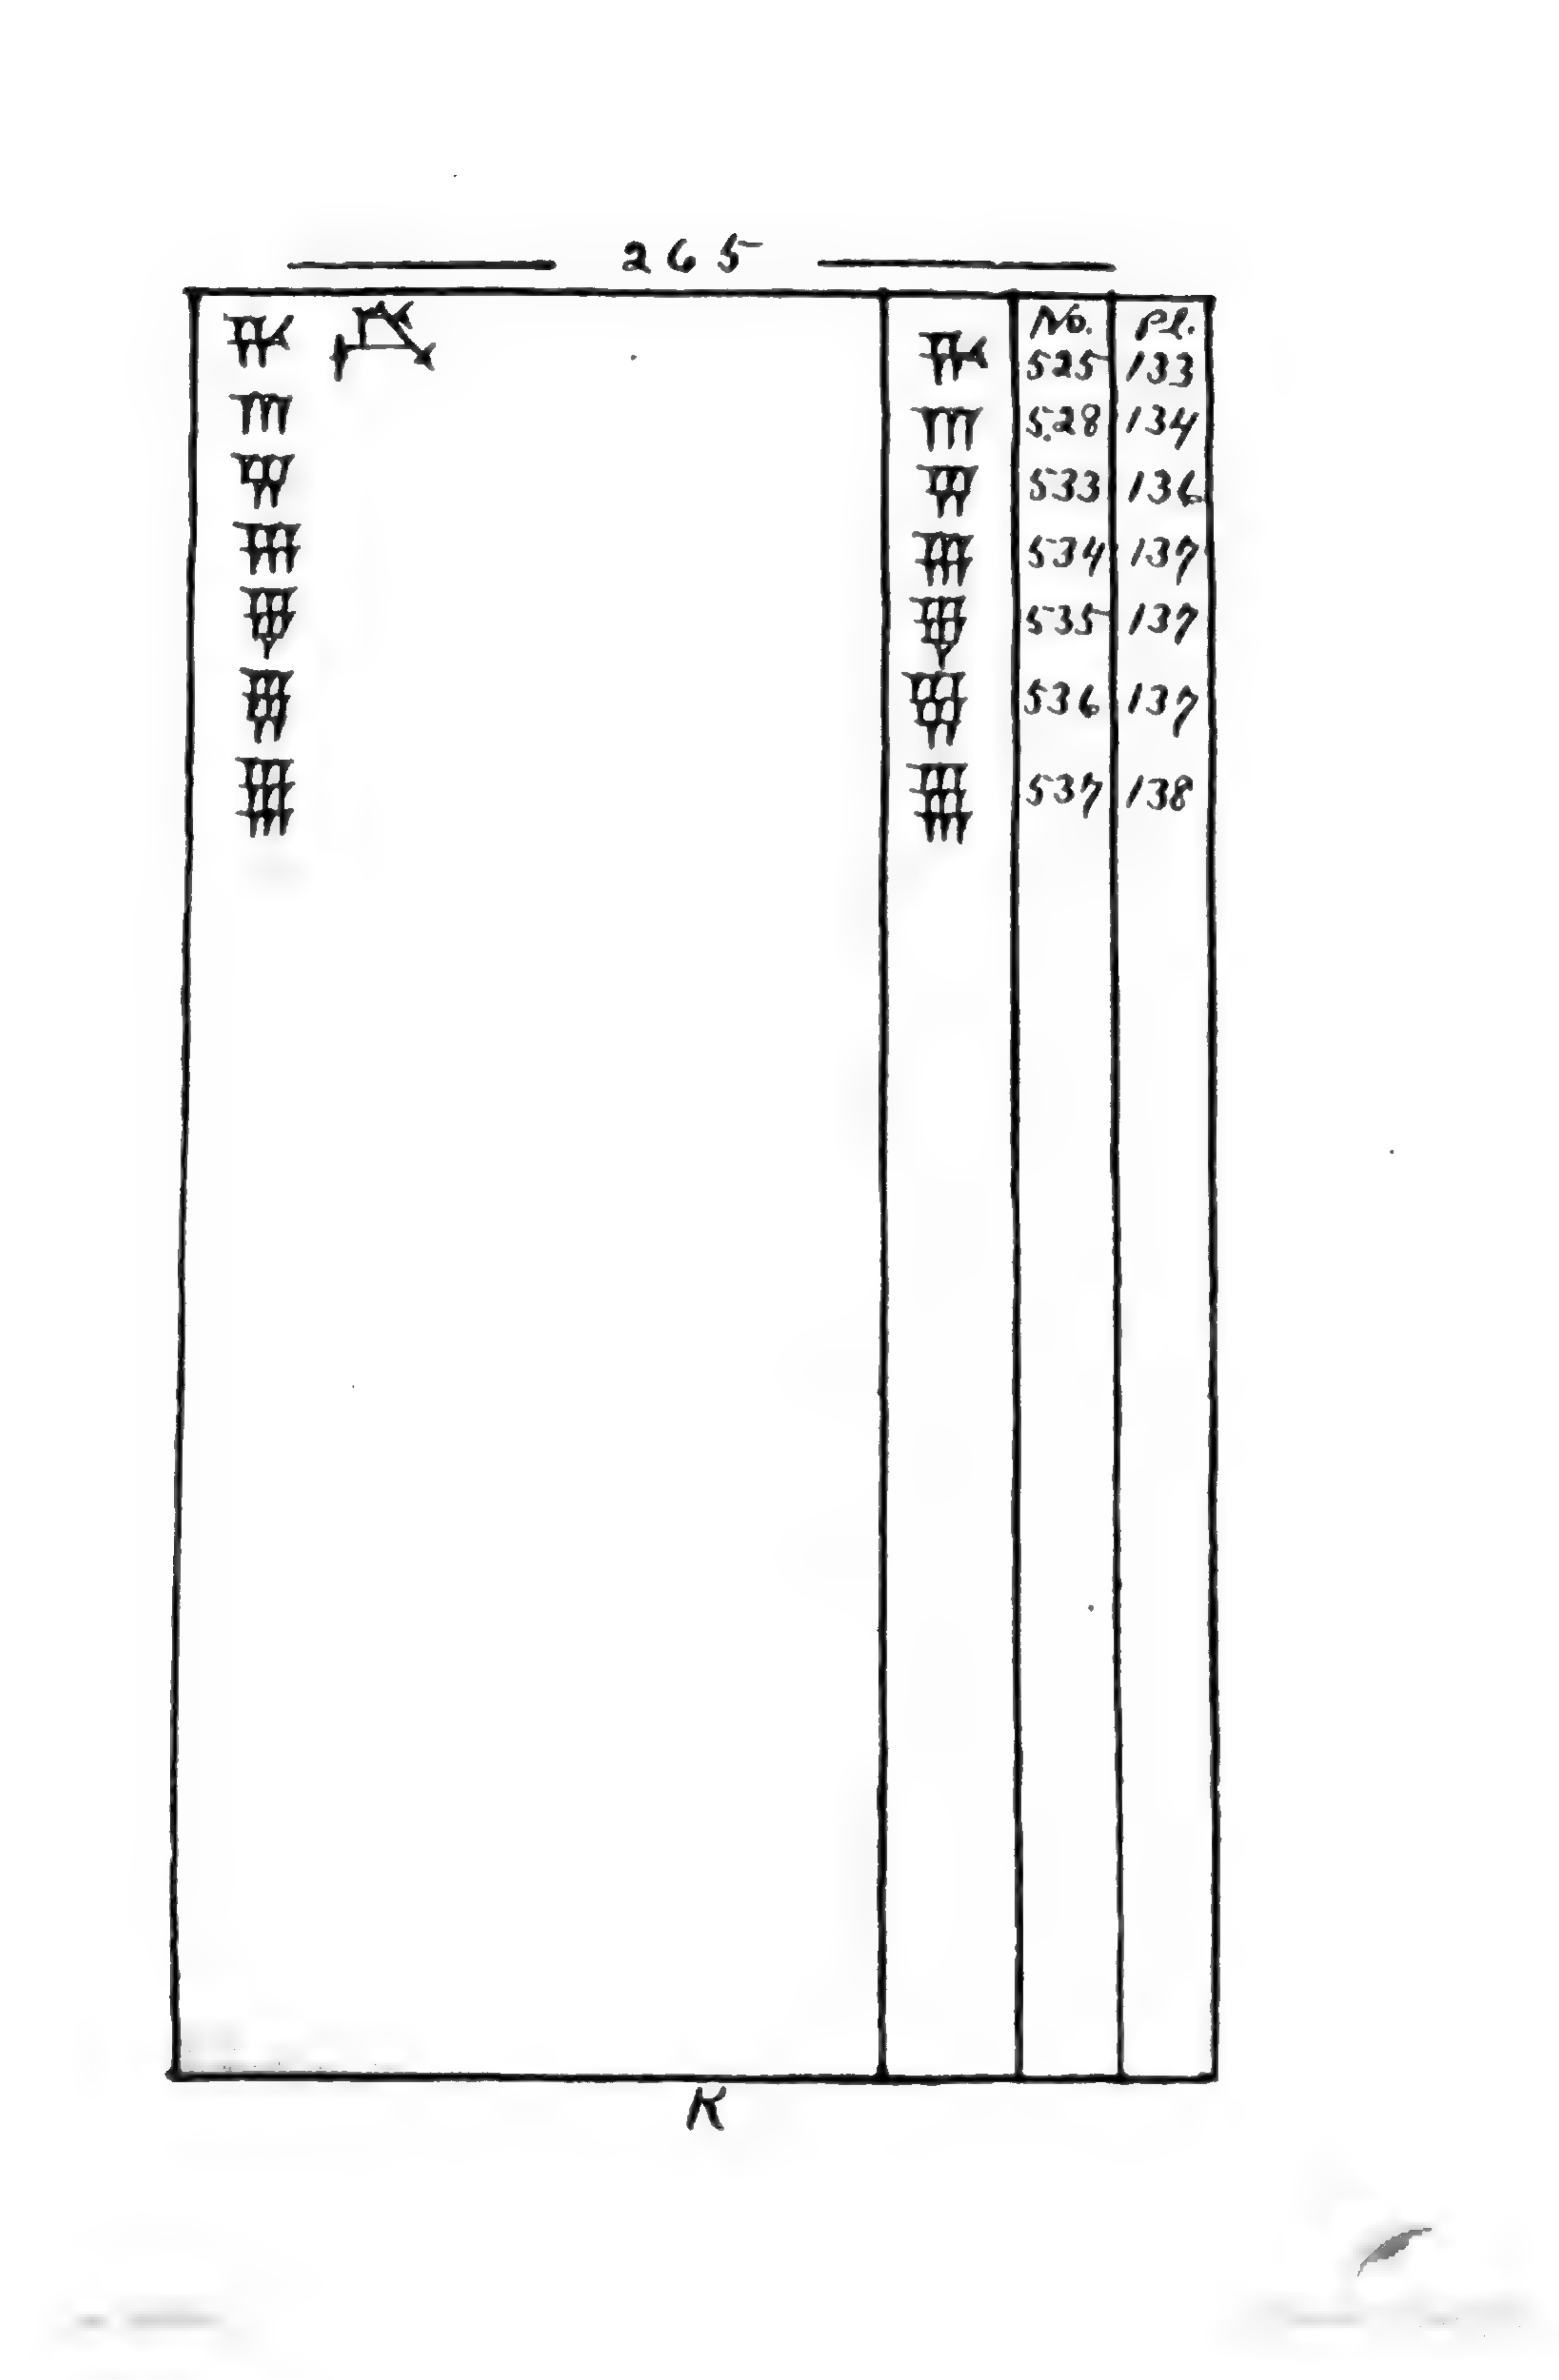 265
No. Pl.
525 133
𒐈 𒐈 528 134
𒐉 𒐉 533 136
𒐋 𒐋 534 137
𒐌 𒐌 535 137
𒐍 𒐍 536 137
𒐎 𒐎 537 138
K